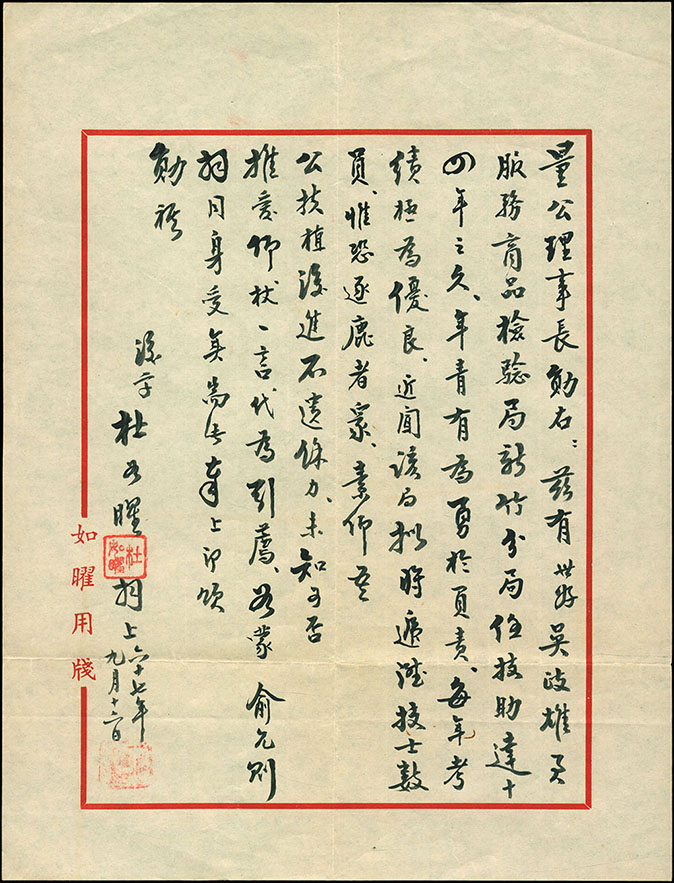 量公理事長勛右：茲有世好吳政雄君
服務商品檢驗局新竹分局任技助達十
四年之久、年青有為勇於負責、每年考
績極為優良、近聞該局擬將遞陞技士數
員、惟恐逐鹿者眾、素仰吾
公扶植後進不遺餘力、未知可否
推愛仰杖一言代為引薦、如蒙 俞允則
同身受矣耑此奉上即頌
勛祺
後學 杜如曜 上 六十七年
九月十二日
杜如曜
如曜用牋